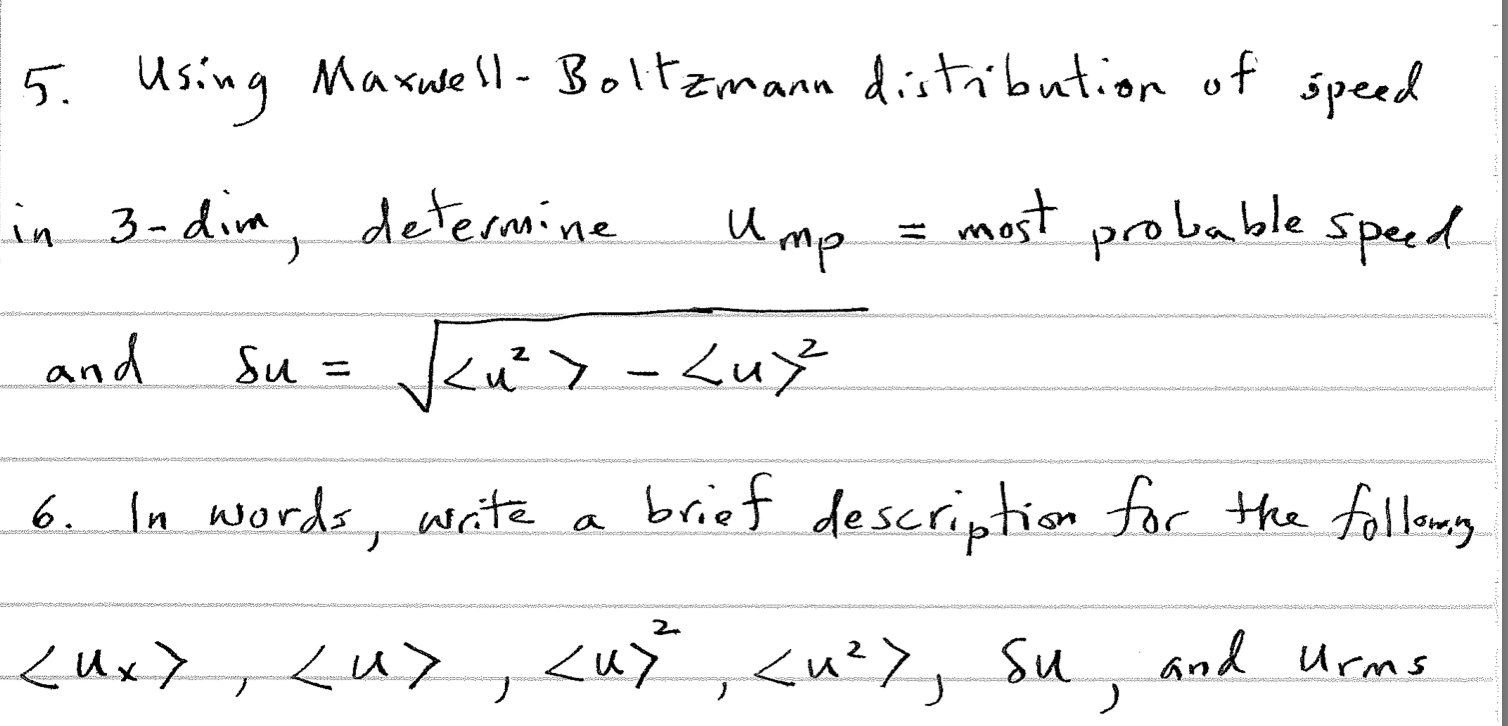 5. Using Maxwell-Boltzmann distribution of speed
in 3-dim, determine u_mp = most probable speed
and δu = √(<u²> - <u>²)
6. In words, write a brief description for the following
<u_x>, <u>, <u>², <u²>, δu, and u_rms